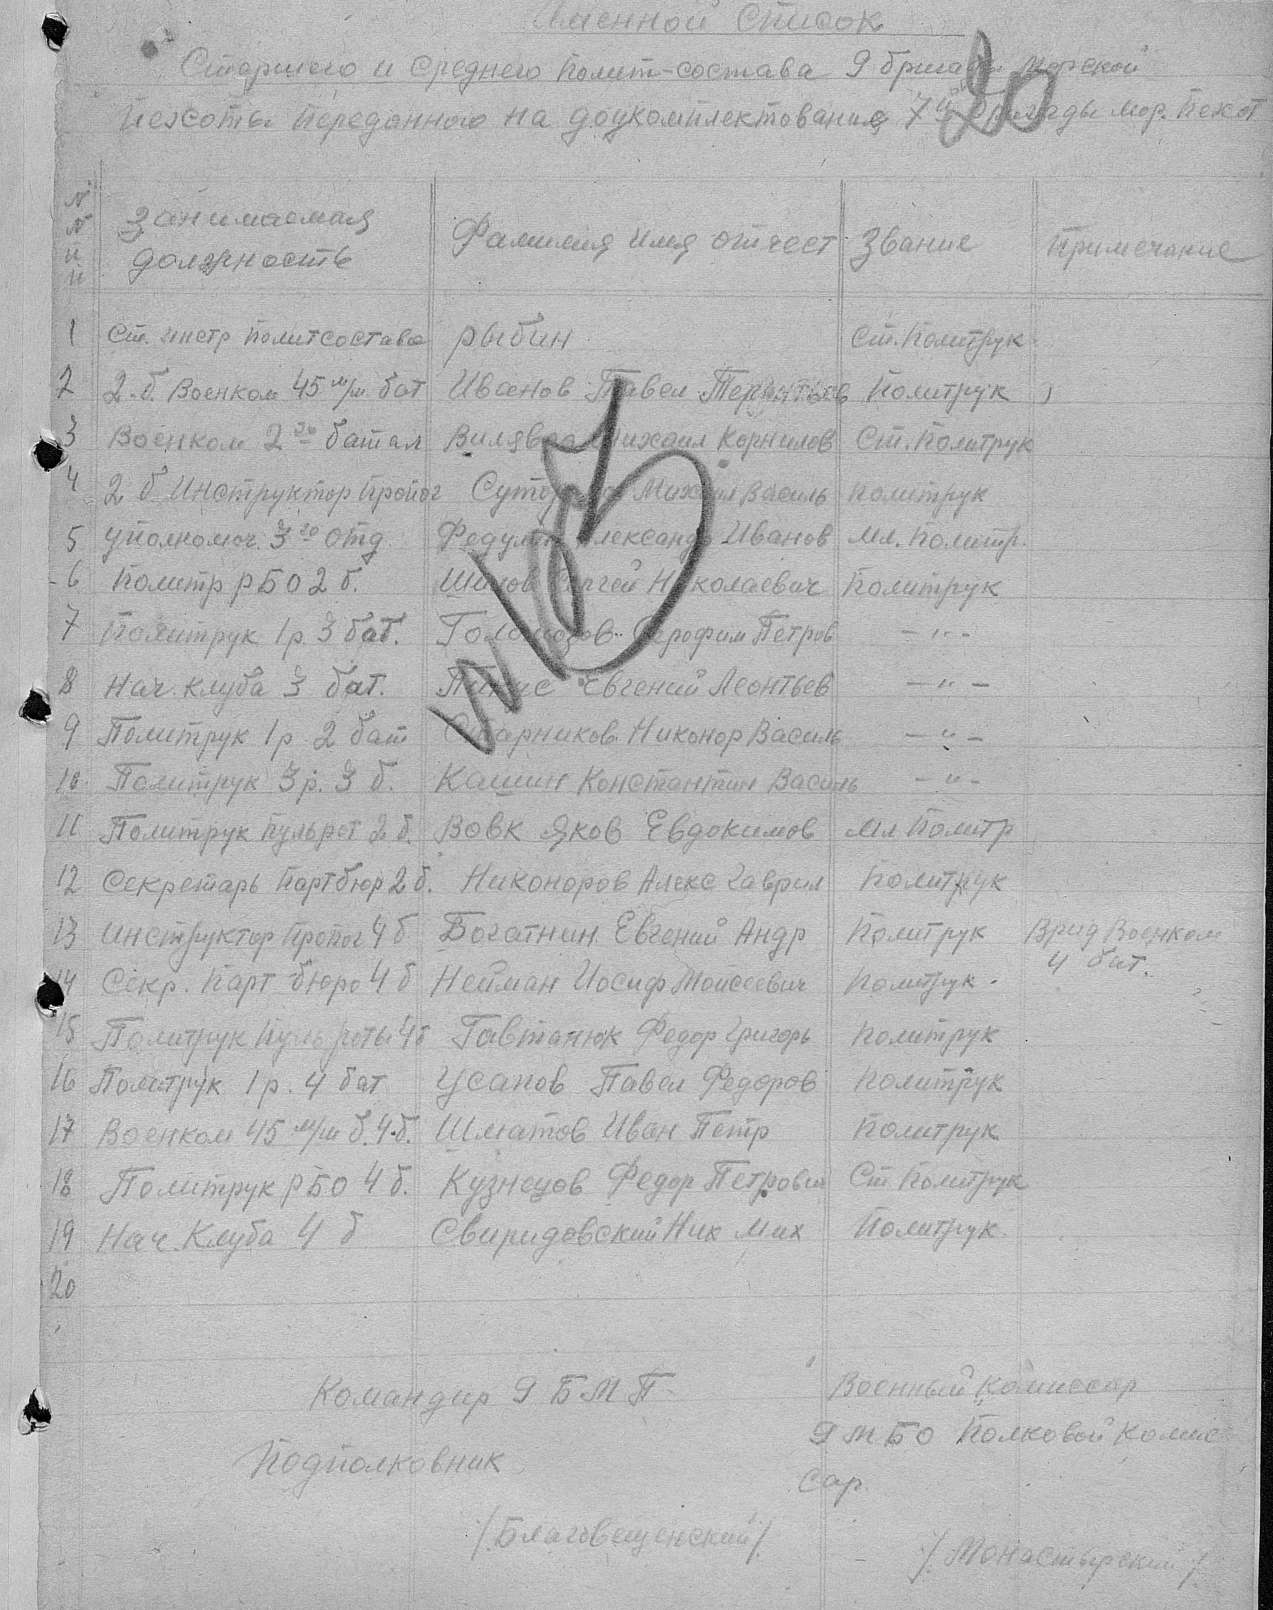 Именной Список
Старшего и Среднего Полит-состава 9 бригады Морской
Пехоты Переданного на доукомплектование 7й бригады Мор. Пехот
20
№ № п п Занимаемая должность Фамилия Имя отчест Звание Примечание
1 Ст. инстр Политсостава Рыбин Ст. Политрук
2 2 б. Военком 45 м/м бат Иванов Павел Политрук
3 Военком 2го батал Михаил Корнилов Ст. Политрук
4 2 б Инструктор Пропог Михаил Василь Политрук
5 Уполномоч. 3го отд. Александр Иванов Мл. Политр.
6 Политр РБО 2 б. Сергей Николаевич Политрук
7 Политрук 1 р. 3 бат. Серофим Петров —〃—
8 Нач. клуба 3 бат. Евгений Леонтьев —〃—
9 Политрук 1 р 2 бат Никонор Василь —〃—
10 Политрук 3 р. 3 б. Кашин Константин Василь —〃—
11 Политрук Пульрот 2 б. Вовк Яков Евдокимов Мл Политр
12 Секретарь Партбюр 2 б. Никоноров Алекс Гаврил Политрук
13 Инструктор Пропог 4 б Богатнин Евгений Андр Политрук Врид Военком
4 бат.
14 Секр. Парт бюро 4 б Нейман Иосиф Моисеевич Политрук.
15 Политрук Пуль роты 4 б Гавтанюк Федор Григорь Политрук
16 Политрук 1 р. 4 бат Усанов Павел Федоров Политрук
17 Военком 45 м/м б. 4 б. Шматов Иван Петр Политрук
18 Политрук РБО 4 б. Кузнецов Федор Петрович Ст Политрук
19 Нач. Клуба 4 б Свиридовский Ник Мих Политрук
20
Командир 9 Б М П
Подполковник
/Благовещенский/
Военный Комиссар
9 М Б О Полковой Комис
сар.
/Монастырский/